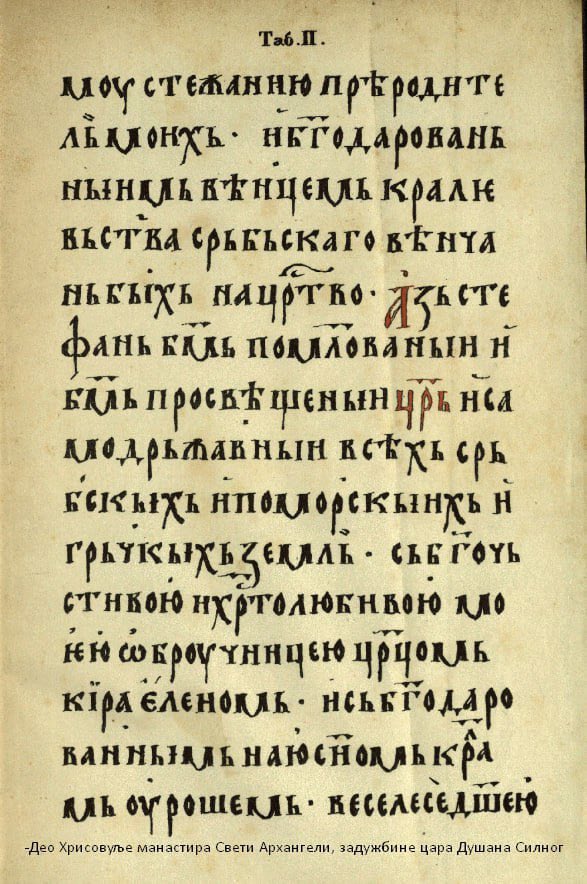 Таб.II.
моу стежанню прѣродите
льмоихь · нбг҃одаровань
ныимь вѣнцемь кралѥ
вьства срьбьскаго вѣнча
ньбыхь нацр҃тво · Азь сте
фань бм҃ь помл҃ованыи и
бм҃ь просвѣщеныи цр҃ь иса
модрьжавныи всѣхь срь
бскыхь ипоморскыихь и
грьчкыхь земль · сьбг҃очь
стивою ихр҃толюбивою мо
ѥю ѡброучницею цр҃цомь
кїра єленомь · исьбг҃одаро
ваннымь наюсн҃омь кр҃а
мь оурошемь · веселеседш҃ею
-Део Хрисовуље манастира Свети Архангели, задужбине цара Душана Силног